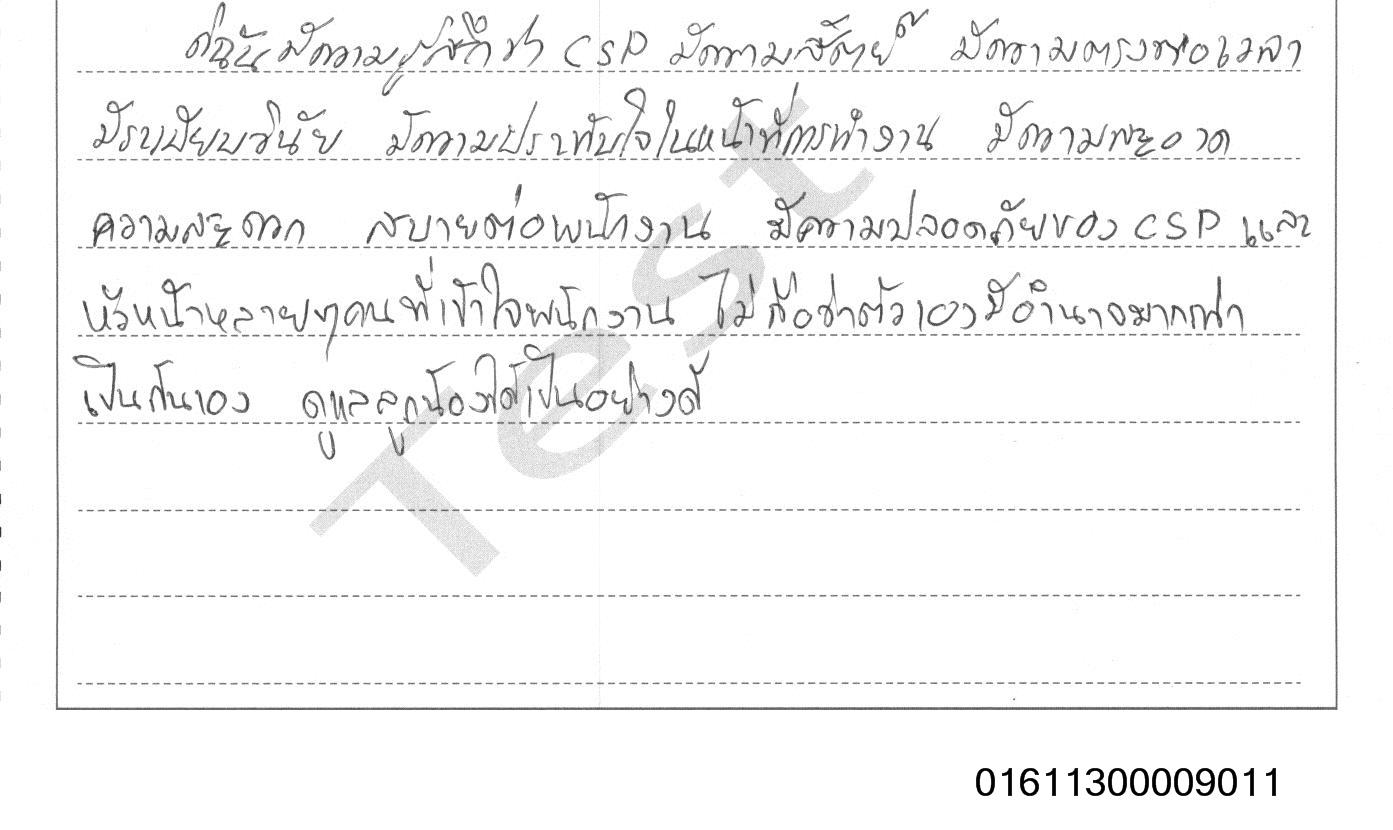 ดิฉันมีความรู้สึกว่า CSP มีความสัตย์ มีความตรงต่อเวลา
มีระเบียบวินัย มีความประทับใจในหน้าที่การทำงาน มีความสะอาด
ความสะดวก สบายต่อพนักงาน มีความปลอดภัยของ CSP และ
หัวหน้าหลายๆคนที่เข้าใจพนักงาน ไม่ถือว่าตัวเองมีอำนาจมากกว่า
เป็นกันเอง ดูแลลูกน้องได้เป็นอย่างดี
Test
01611300009011